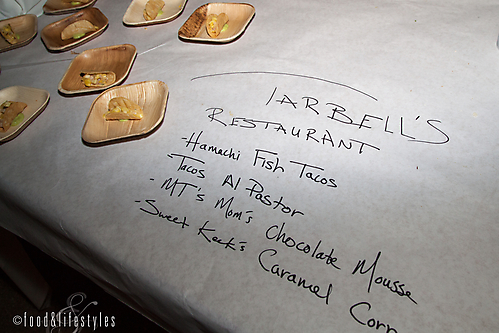 TARBELL'S
RESTAURANT
-Hamachi Fish Tacos
-Tacos Al Pastor
-MT's Mom's Chocolate Mousse
-Sweet Keck's Caramel Corn
©food&lifestyles